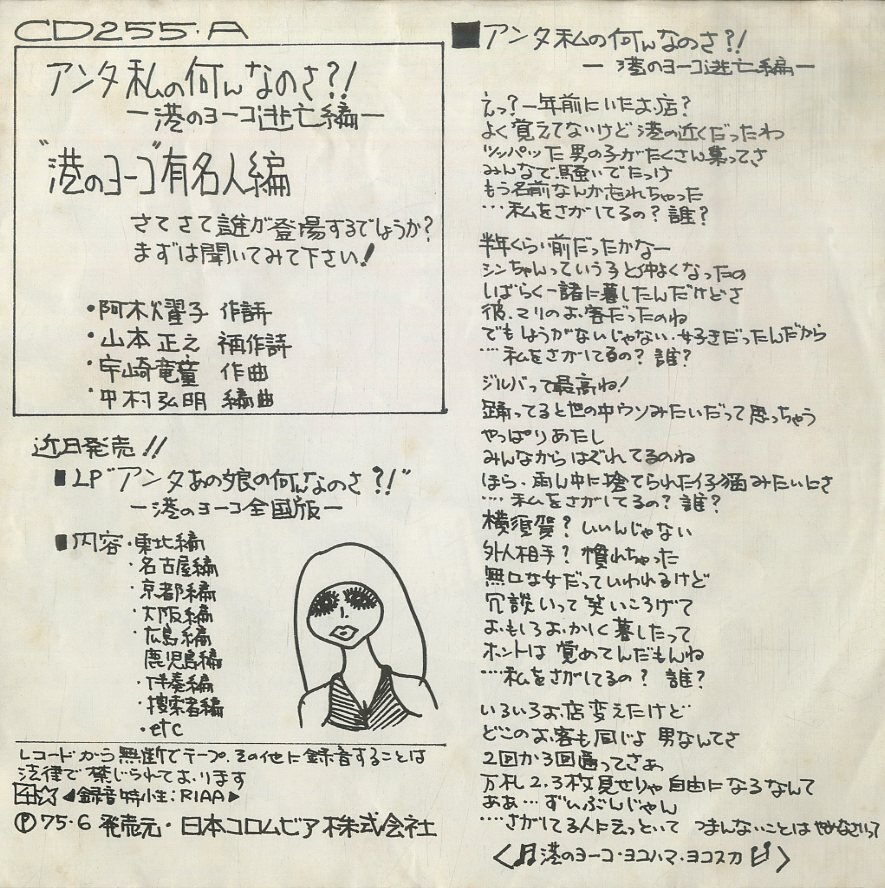 CD255・A
アンタ私の何んなのさ?!
―港のヨーコ逃亡編―
"港のヨーコ"有名人編
さてさて誰が登場するでしょうか?
まずは聞いてみて下さい!
・阿木燿子 作詩
・山本正之 補作詩
・宇崎竜童 作曲
・中村弘明 編曲
近日発売!!
■LP"アンタあの娘の何んなのさ?!"
―港のヨーコ全国版―
■内容・東北編
・名古屋編
・京都編
・大阪編
・広島編
鹿児島編
・伴奏編
・捜索者編
・etc
レコードから無断でテープ、その他に録音することは
法律で禁じられております
◀録音特性:RIAA▶
Ⓟ75・6 発売元・日本コロムビア株式会社
■アンタ私の何んなのさ?!
―港のヨーコ逃亡編―
えっ?一年前にいたお店?
よく覚えてないけど港の近くだったわ
ツッパッた男の子がたくさん集ってさ
みんなで騒いでたっけ
もう名前なんか忘れちゃった
…私をさがしてるの?誰?
半年くらい前だったかなー
シンちゃんっていう子と仲よくなったの
しばらく一諸に暮したんだけどさ
彼、マリのお客だったのね
でもしょうがないじゃない、好きだったんだから
…私をさがしてるの?誰?
ジルバって最高ね!
踊ってると世の中ウソみたいだって思っちゃう
やっぱりあたし
みんなからはぐれてるのね
ほら、雨ん中に捨てられた仔猫みたいにさ
…私をさがしてるの?誰?
横須賀?いいんじゃない
外人相手?慣れちゃった
無口な女だっていわれるけど
冗談いって笑いころげて
おもしろおかしく暮したって
ホントは覚めてんだもんね
…私をさがしてるの?誰?
いろいろお店変えたけど
どこのお客も同じよ 男なんてさ
2回か3回通ってさぁ
万札2、3枚見せりゃ自由になるなんて
ああ…ずいぶんじゃん
…さがしてる人に云っといて つまんないことはやめなさいって
<♫港のヨーコ・ヨコハマ・ヨコスカ♫>